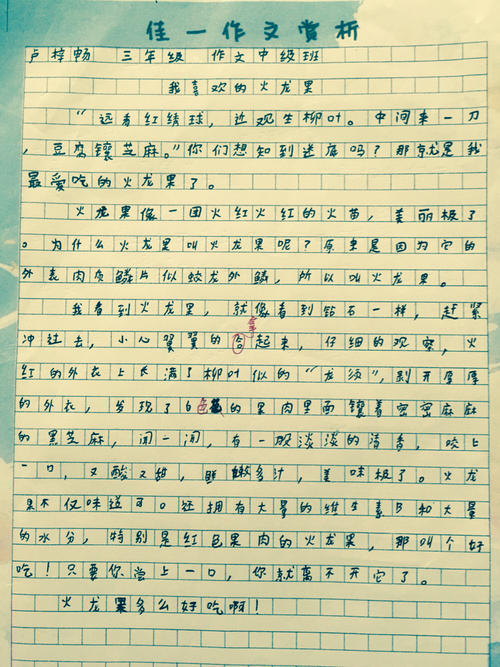 佳一作文赏析
卢梓畅 三年级 作文中级班
我喜欢的火龙果
“远看红绣球,近观生柳叶。中间来一刀
,豆腐镶芝麻。”你们想知到迷底吗?那就是我
最爱吃的火龙果了。
火龙果像一团火红火红的火苗,美丽极了
。为什么火龙果叫火龙果呢?原来是因为它的
外表肉质鳞片似蛟龙外鳞,所以叫火龙果。
我看到火龙果,就像看到钻石一样,赶紧
冲过去,小心翼翼的拿起来,仔细的观察,火
红的外衣上长满了柳叶似的“龙须”,剥开厚厚
的外衣,发现了白色的果肉里面镶着密密麻麻
的黑芝麻,闻一闻,有一股淡淡的清香,咬上
一口,又酸又甜,鲜嫩多汁,美味极了。火龙
果不仅味道可口还拥有大量的维生素B和大量
的水分,特别是红色果肉的火龙果,那叫个好
吃!只要你尝上一口,你就离不开它了。
火龙果多么好吃啊!